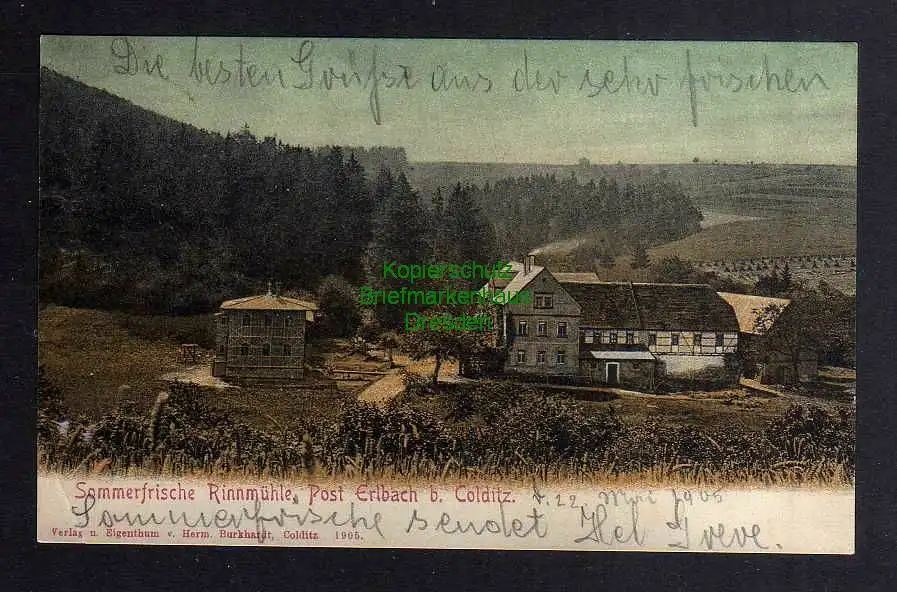 Die besten Grüße aus der sehr frischen
Kopierschutz
Briefmarkenhaus
Dresden
Sommerfrische Rinnmühle, Post Erlbach b. Colditz.
d. 22. Mai 1905
Sommerfrische sendet Hel Greve.
Verlag u. Eigenthum v. Herm. Burkhardt, Colditz 1905.